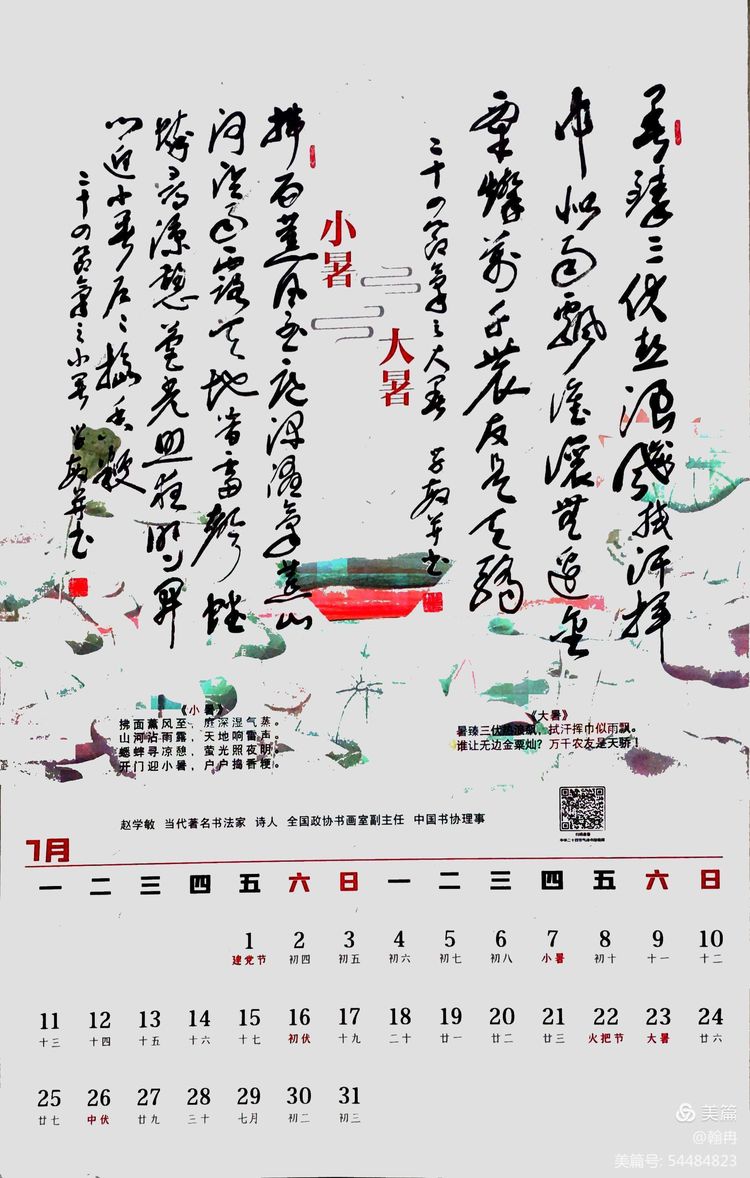 暑臻三伏熱浪飆拭汗揮
巾似雨飄誰讓無邊金
粟燦萬千農友是天驕
二十四節氣之大暑 学敏并书
小暑
大暑
拂面薰風至庭深濕氣蒸山
河沾雨露天地响雷聲蟋
蟀尋凉憩萤光照夜明开
门迎小暑户々捣香粳
二十四節氣之小暑 学敏并书
《小暑》
拂面薰风至，庭深湿气蒸。
山河沾雨露，天地响雷声。
蟋蟀寻凉憩，萤光照夜明。
开门迎小暑，户户捣香粳。
《大暑》
暑臻三伏热浪飙，拭汗挥巾似雨飘。
谁让无边金粟灿？万千农友是天骄！
赵学敏 当代著名书法家 诗人 全国政协书画室副主任 中国书协理事
7月
一 二 三 四 五 六 日 一 二 三 四 五 六 日
1 2 3 4 5 6 7 8 9 10
建党节 初四 初五 初六 初七 初八 小暑 初十 十一 十二
11 12 13 14 15 16 17 18 19 20 21 22 23 24
十三 十四 十五 十六 十七 初伏 十九 二十 廿一 廿二 廿三 火把节 大暑 廿六
25 26 27 28 29 30 31
廿七 中伏 廿九 三十 七月 初二 初三
美篇
@翰冉
美篇号: 54484823